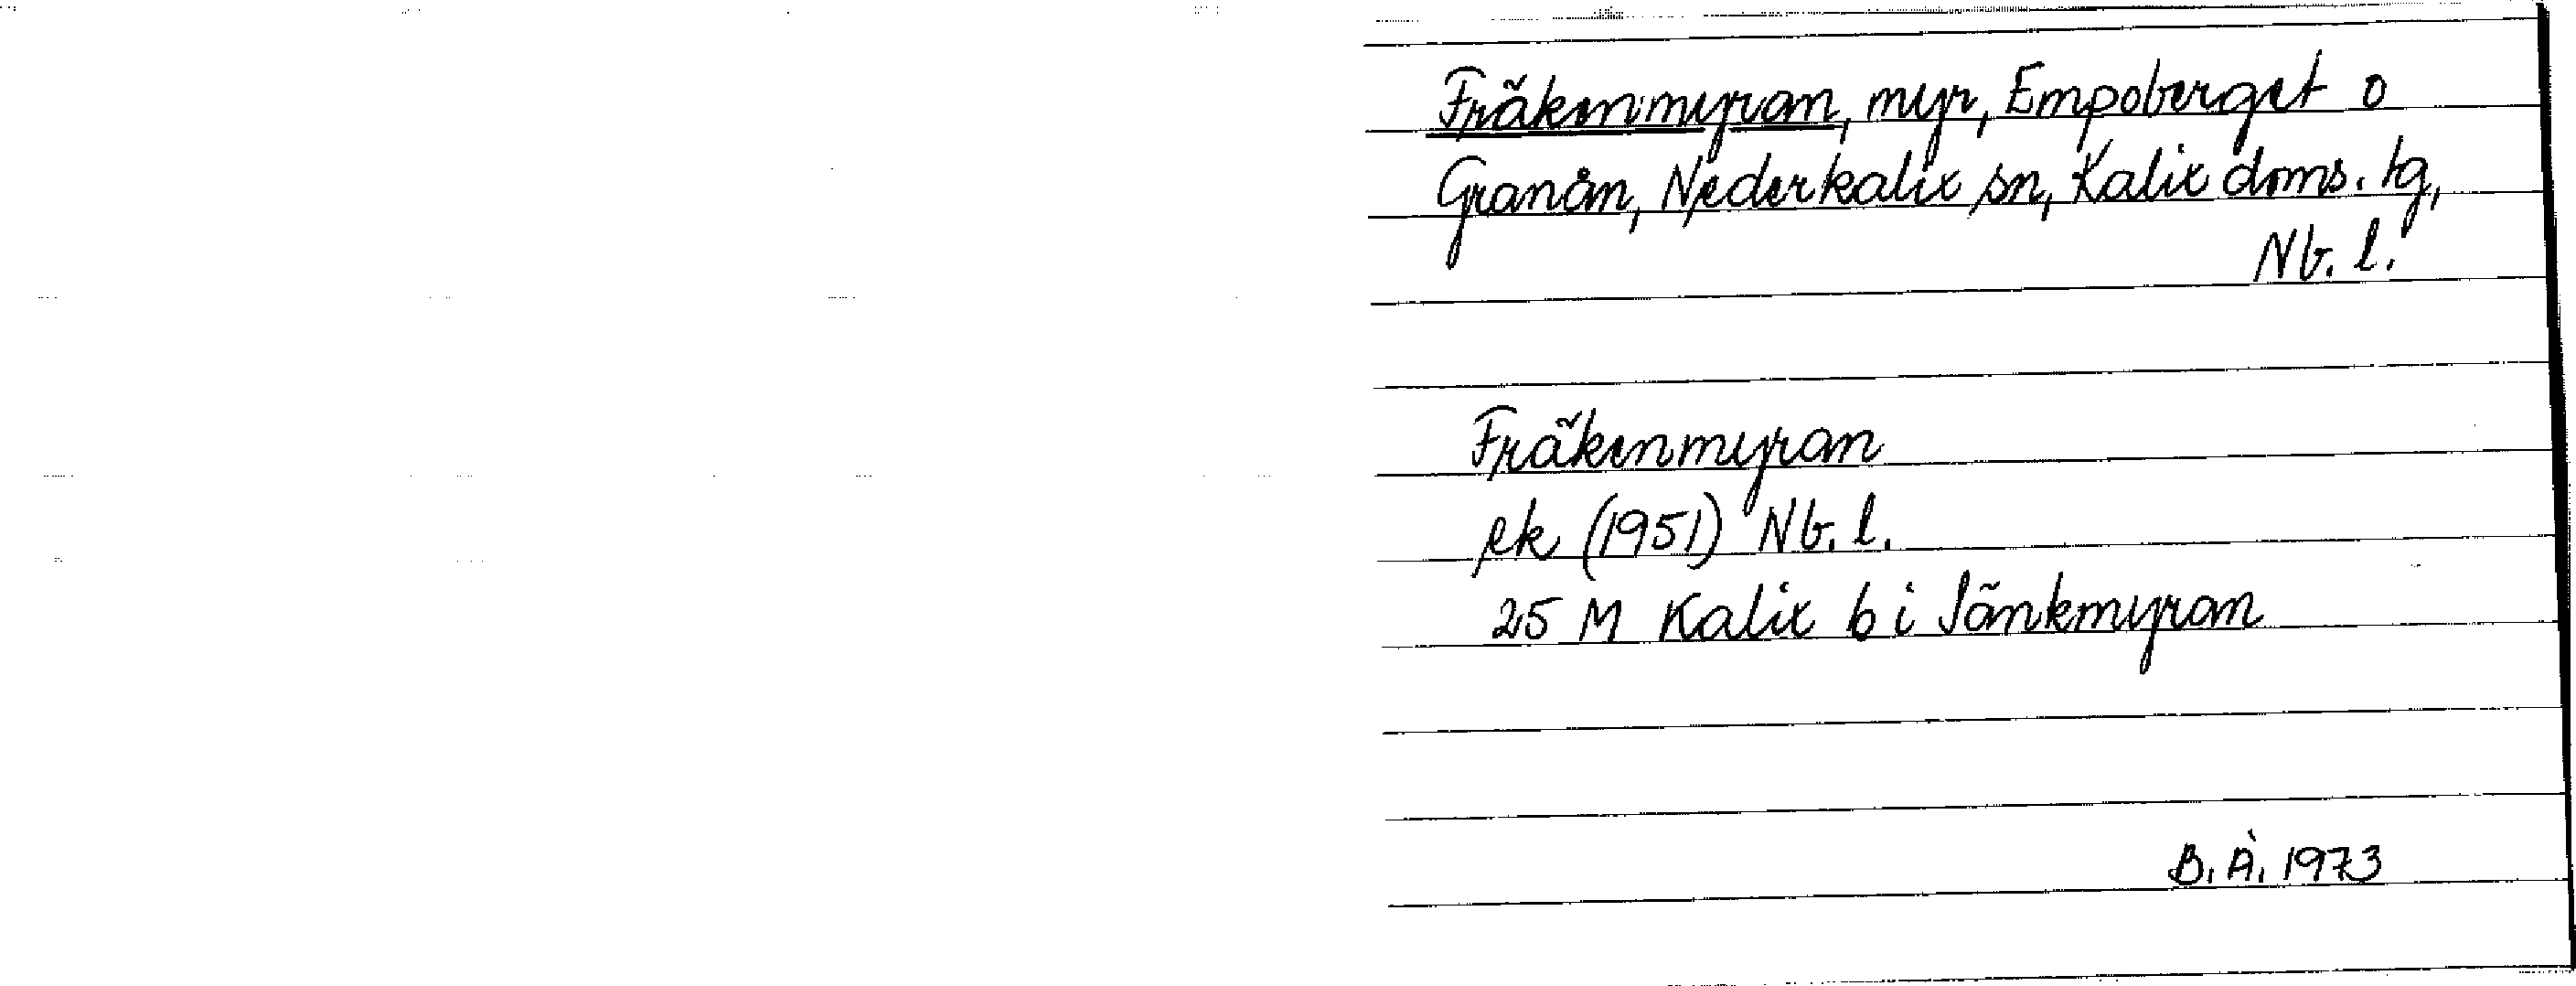 Fräkenmyran, myr, Empoberget o
Granån, Nederkalix sn, Kalix doms. tg,
Nb. l.
Fräkenmyran
ek (1951) Nb. l.
25 M Kalix b i Sänkmyran
B. Å. 1973